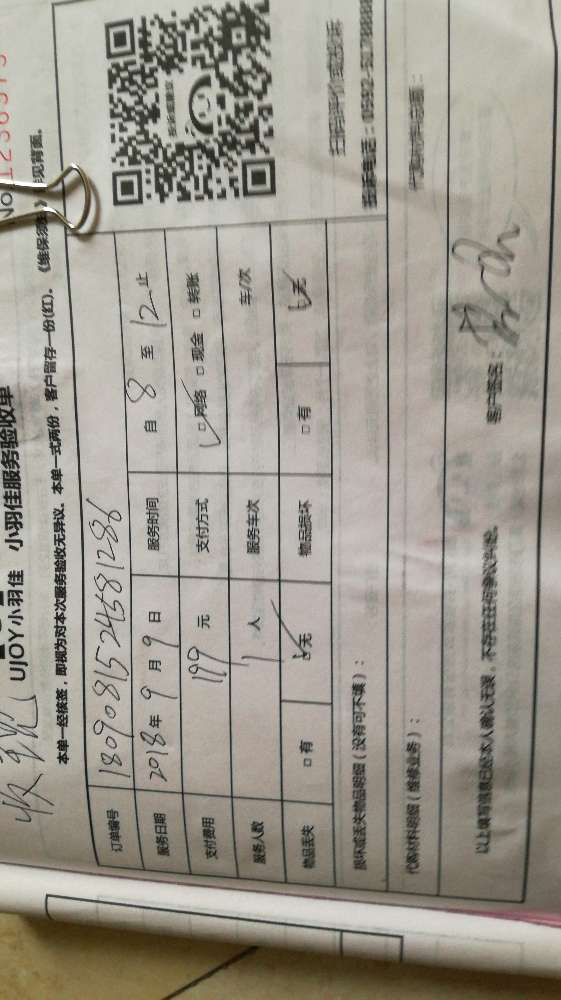 No 1236575
UJOY小羽佳 小羽佳服务验收单
本单一经核签，即视为对本次服务验收无异议。本单一式两份，客户留存一份(红)。《维保须知》详见背面。
订单编号 1809081524581286
服务日期 2018年9月9日 服务时间 自8至12止
支付费用 199元 支付方式 □网络 □现金 □转账
服务人数 1人 服务车次 车/次
物品丢失 □有 □无 物品损坏 □有 □无
损坏或丢失物品明细（没有可不填）：
代购材料明细（维修业务）：
代购材料总额：
以上填写信息已经本人确认无误，不存在任何争议纠纷。
客户签名：
扫码评价或投诉